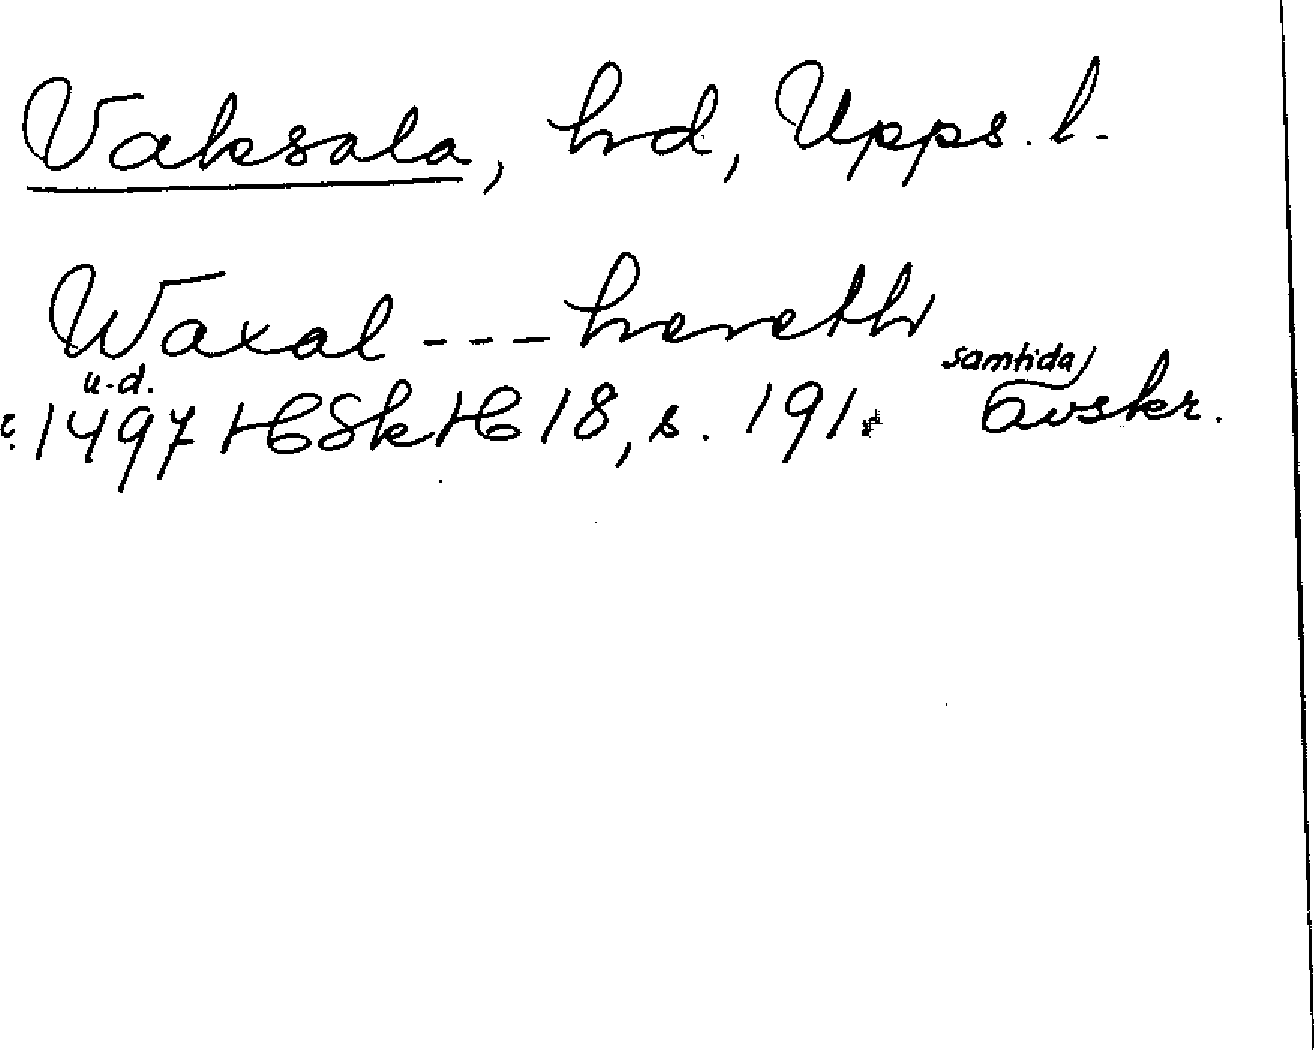 Vaksala, hd, Upps. l.
Waxal --- hereth
samtida
u.d.
c. 1497 HSkH 18, s. 191. avskr.